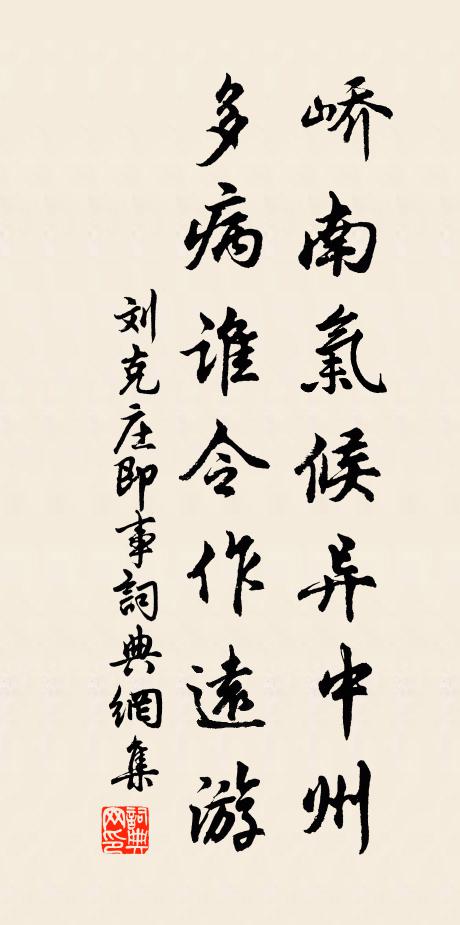 峤南氣候异中州
多病谁令作遠游
刘克庄即事詞典網集
詞典网印